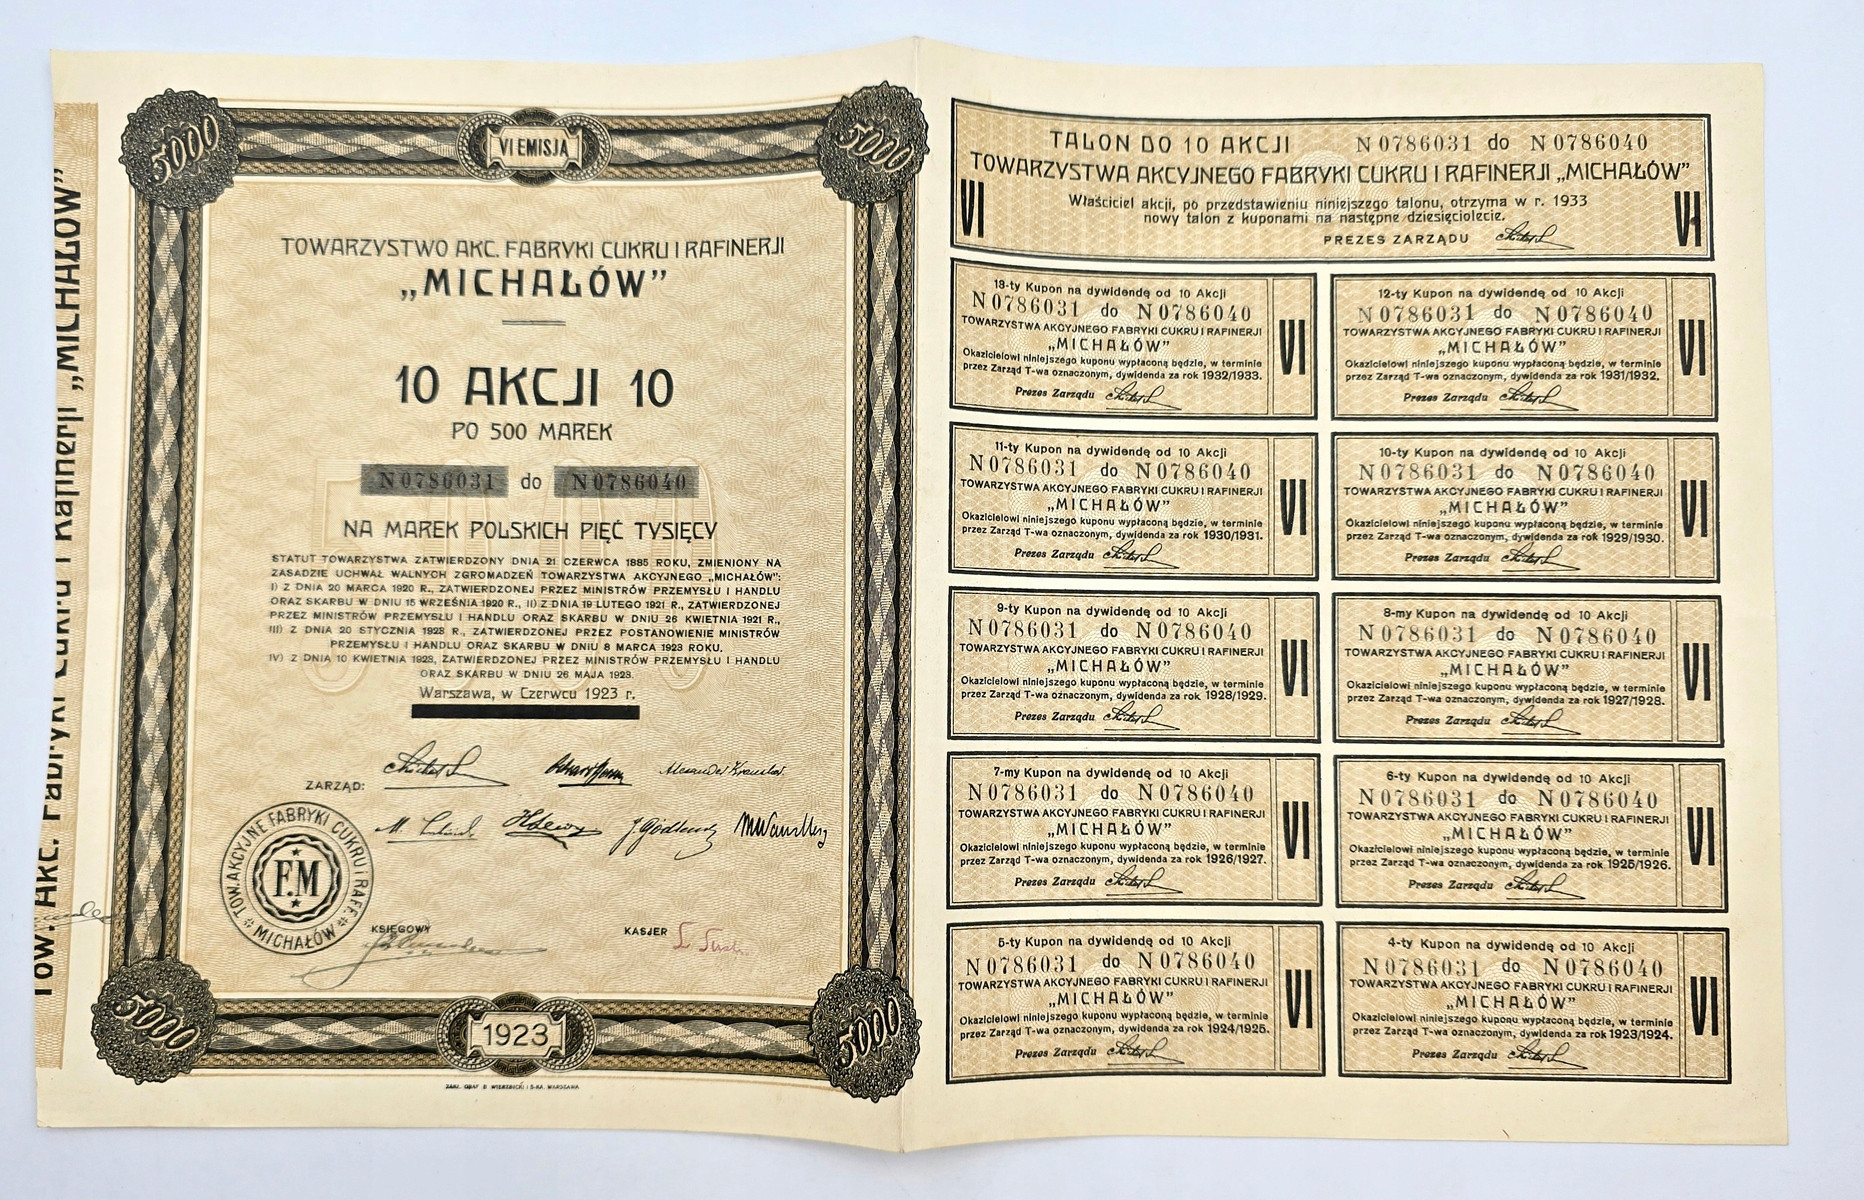 Tow. Akc. Fabryki Cukru i Rafinerji „MICHAŁÓW”
5000
VI EMISJA
5000
TOWARZYSTWO AKC. FABRYKI CUKRU I RAFINERJI
„MICHAŁÓW”
10 AKCJI 10
PO 500 MAREK
N 0786031 do N 0786040
NA MAREK POLSKICH PIĘĆ TYSIĘCY
STATUT TOWARZYSTWA ZATWIERDZONY DNIA 21 CZERWCA 1885 ROKU, ZMIENIONY NA
ZASADZIE UCHWAŁ WALNYCH ZGROMADZEŃ TOWARZYSTWA AKCYJNEGO „MICHAŁÓW”:
I) Z DNIA 20 MARCA 1920 R., ZATWIERDZONEJ PRZEZ MINISTRÓW PRZEMYSŁU I HANDLU
ORAZ SKARBU W DNIU 15 WRZEŚNIA 1920 R., II) Z DNIA 19 LUTEGO 1921 R., ZATWIERDZONEJ
PRZEZ MINISTRÓW PRZEMYSŁU I HANDLU ORAZ SKARBU W DNIU 26 KWIETNIA 1921 R.,
III) Z DNIA 20 STYCZNIA 1923 R., ZATWIERDZONEJ PRZEZ POSTANOWIENIE MINISTRÓW
PRZEMYSŁU I HANDLU ORAZ SKARBU W DNIU 8 MARCA 1923 ROKU,
IV) Z DNIA 10 KWIETNIA 1923, ZATWIERDZONEJ PRZEZ MINISTRÓW PRZEMYSŁU I HANDLU
ORAZ SKARBU W DNIU 26 MAJA 1923.
Warszawa, w Czerwcu 1923 r.
ZARZĄD:
TOW. AKCYJNE FABRYKI CUKRU I RAFE
F.M
MICHAŁÓW
KSIĘGOWY
KASJER
5000
1923
5000
ZAKŁ. GRAF. B. WIERZBICKI I S-KA, WARSZAWA
TALON DO 10 AKCJI N 0786031 do N 0786040
TOWARZYSTWA AKCYJNEGO FABRYKI CUKRU I RAFINERJI „MICHAŁÓW”
Właściciel akcji, po przedstawieniu niniejszego talonu, otrzyma w r. 1933
nowy talon z kuponami na następne dziesięciolecie.
PREZES ZARZĄDU
VI
VI
13-ty Kupon na dywidendę od 10 Akcji
N 0786031 do N 0786040
TOWARZYSTWA AKCYJNEGO FABRYKI CUKRU I RAFINERJI
„MICHAŁÓW”
Okazicielowi niniejszego kuponu wypłaconą będzie, w terminie
przez Zarząd T-wa oznaczonym, dywidenda za rok 1932/1933.
Prezes Zarządu
VI
12-ty Kupon na dywidendę od 10 Akcji
N 0786031 do N 0786040
TOWARZYSTWA AKCYJNEGO FABRYKI CUKRU I RAFINERJI
„MICHAŁÓW”
Okazicielowi niniejszego kuponu wypłaconą będzie, w terminie
przez Zarząd T-wa oznaczonym, dywidenda za rok 1931/1932.
Prezes Zarządu
VI
11-ty Kupon na dywidendę od 10 Akcji
N 0786031 do N 0786040
TOWARZYSTWA AKCYJNEGO FABRYKI CUKRU I RAFINERJI
„MICHAŁÓW”
Okazicielowi niniejszego kuponu wypłaconą będzie, w terminie
przez Zarząd T-wa oznaczonym, dywidenda za rok 1930/1931.
Prezes Zarządu
VI
10-ty Kupon na dywidendę od 10 Akcji
N 0786031 do N 0786040
TOWARZYSTWA AKCYJNEGO FABRYKI CUKRU I RAFINERJI
„MICHAŁÓW”
Okazicielowi niniejszego kuponu wypłaconą będzie, w terminie
przez Zarząd T-wa oznaczonym, dywidenda za rok 1929/1930.
Prezes Zarządu
VI
9-ty Kupon na dywidendę od 10 Akcji
N 0786031 do N 0786040
TOWARZYSTWA AKCYJNEGO FABRYKI CUKRU I RAFINERJI
„MICHAŁÓW”
Okazicielowi niniejszego kuponu wypłaconą będzie, w terminie
przez Zarząd T-wa oznaczonym, dywidenda za rok 1928/1929.
Prezes Zarządu
VI
8-my Kupon na dywidendę od 10 Akcji
N 0786031 do N 0786040
TOWARZYSTWA AKCYJNEGO FABRYKI CUKRU I RAFINERJI
„MICHAŁÓW”
Okazicielowi niniejszego kuponu wypłaconą będzie, w terminie
przez Zarząd T-wa oznaczonym, dywidenda za rok 1927/1928.
Prezes Zarządu
VI
7-my Kupon na dywidendę od 10 Akcji
N 0786031 do N 0786040
TOWARZYSTWA AKCYJNEGO FABRYKI CUKRU I RAFINERJI
„MICHAŁÓW”
Okazicielowi niniejszego kuponu wypłaconą będzie, w terminie
przez Zarząd T-wa oznaczonym, dywidenda za rok 1926/1927.
Prezes Zarządu
VI
6-ty Kupon na dywidendę od 10 Akcji
N 0786031 do N 0786040
TOWARZYSTWA AKCYJNEGO FABRYKI CUKRU I RAFINERJI
„MICHAŁÓW”
Okazicielowi niniejszego kuponu wypłaconą będzie, w terminie
przez Zarząd T-wa oznaczonym, dywidenda za rok 1925/1926.
Prezes Zarządu
VI
5-ty Kupon na dywidendę od 10 Akcji
N 0786031 do N 0786040
TOWARZYSTWA AKCYJNEGO FABRYKI CUKRU I RAFINERJI
„MICHAŁÓW”
Okazicielowi niniejszego kuponu wypłaconą będzie, w terminie
przez Zarząd T-wa oznaczonym, dywidenda za rok 1924/1925.
Prezes Zarządu
VI
4-ty Kupon na dywidendę od 10 Akcji
N 0786031 do N 0786040
TOWARZYSTWA AKCYJNEGO FABRYKI CUKRU I RAFINERJI
„MICHAŁÓW”
Okazicielowi niniejszego kuponu wypłaconą będzie, w terminie
przez Zarząd T-wa oznaczonym, dywidenda za rok 1923/1924.
Prezes Zarządu
VI